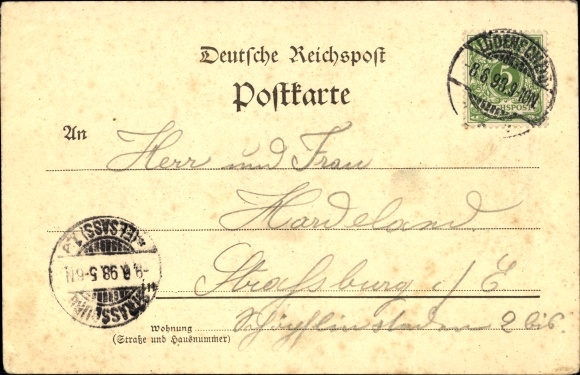 Deutsche Reichspost
Postkarte
5
REICHSPOST
8.6.98.9-10N
An
Herr und Frau
Hardeland
Strassburg i/E
2 bis.
(ELSASS)
-9.6.98.5-6N
Wohnung
(Straße und Hausnummer)